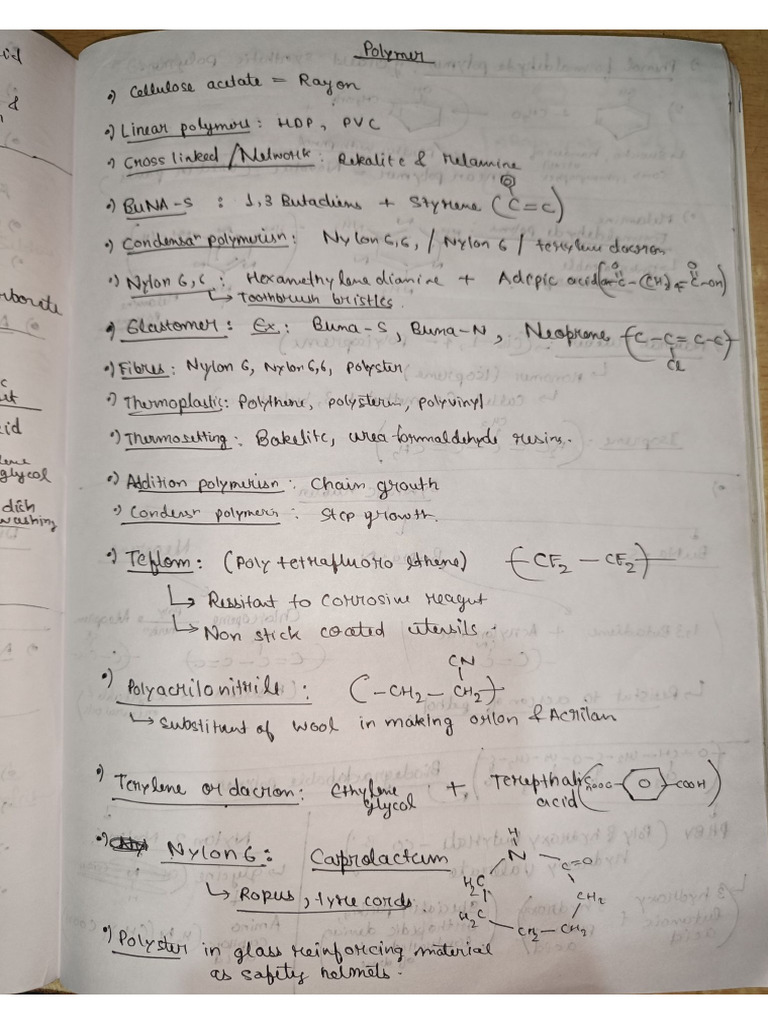 Polymer
•) Cellulose acetate = Rayon
•) Linear polymers : HDP, PVC
•) Cross linked / Network : Bekalite & Melamine
•) BUNA-S : 1,3 Butadiens + Styrene (C=C)
•) Condensaⁿ polymerisn : Nylon 6,6, / Nylon 6 / terylene dacron
•) Nylon 6,6 : Hexamethylene diamine + Adepic acid
↳ Toothbrush bristles.
•) Elastomer : Ex : Buna-S, Buna-N, Neoprene (C-C=C-C)
Cl
•) Fibres : Nylon 6, Nylon 6,6, polyster
•) Thermoplastic : Polythene, polysterin, polyvinyl
•) Thermosetting : Bakelite, urea-formaldehyde resins.
•) Addition polymerisn : Chain growth
•) Condensⁿ polymerisn : Step growth.
•) Teflom : (Poly tetrafluoro ethene) (CF2 - CF2)
↳ Ressitant to corrosive reagut
↳ Non stick coated utensils.
CN
•) Polyacrilonitrile : (-CH2 - CH2)
↳ Substituent of wool in making orlon & Acrilan
•) Terylene or dacron : Ethylene glycol + Terepthalic acid (HOOC- -COOH)
•) Nylon 6 : Caprolactum
↳ Ropes, tyre cords.
H
N
C=O
H2C
CH2
H2C
CH2 - CH2
•) Polyster in glass reinforcing material
as safety helmets.
id
&
rborate
c
cid
glycol
dish
washing